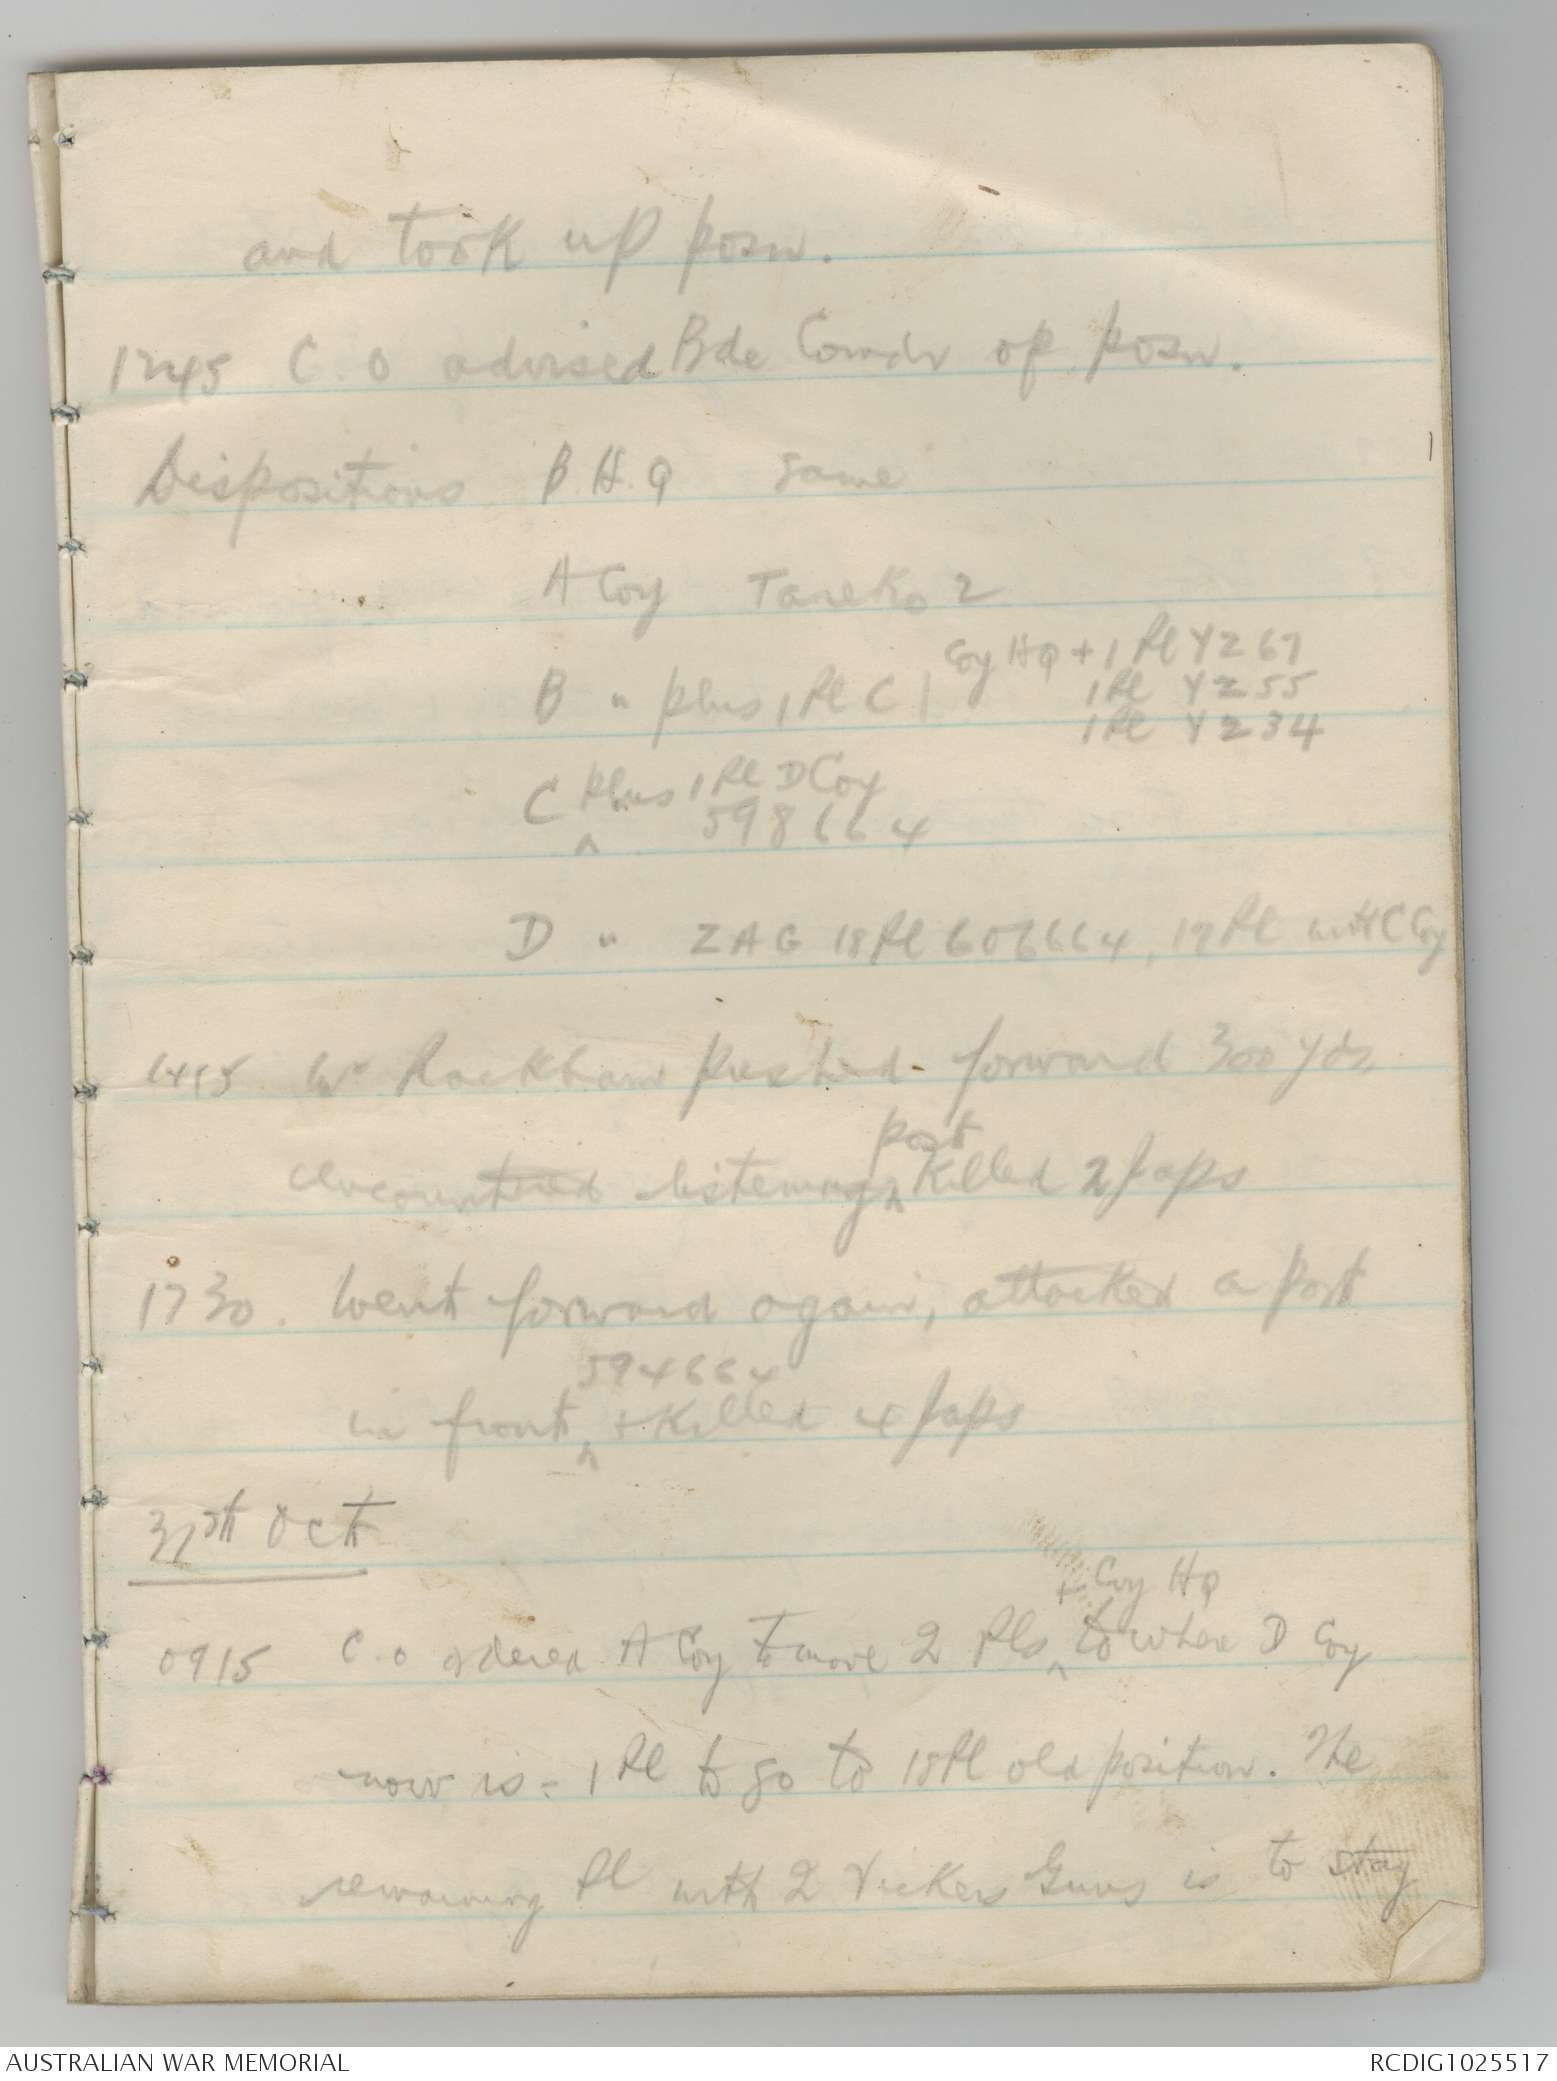 and took up posn.
1245 C.O advised Bde Comdr of posn.
Dispositions B.H.Q same
A Coy Tareko 2
Coy HQ + 1 Pl YZ 67
B " plus 1 Pl C 1 Pl YZ 55
1 Pl YZ 34
C plus 1 Pl D Coy
598664
D " ZAG 18 Pl 606664, 17 Pl with C Coy
1415 Lt Rackham pushed forward 300 yds,
encountered listening post killed 2 Japs
1730. Went forward again, attacked a post
in front 594664 + killed 4 Japs
31st Oct
0915 C.O ordered A Coy to move 2 Pls + Coy HQ to where D Coy
now is = 1 Pl to go to 18 Pl old position. The
remaining Pl with 2 Vickers Guns is to stay
AUSTRALIAN WAR MEMORIAL
RCDIG1025517